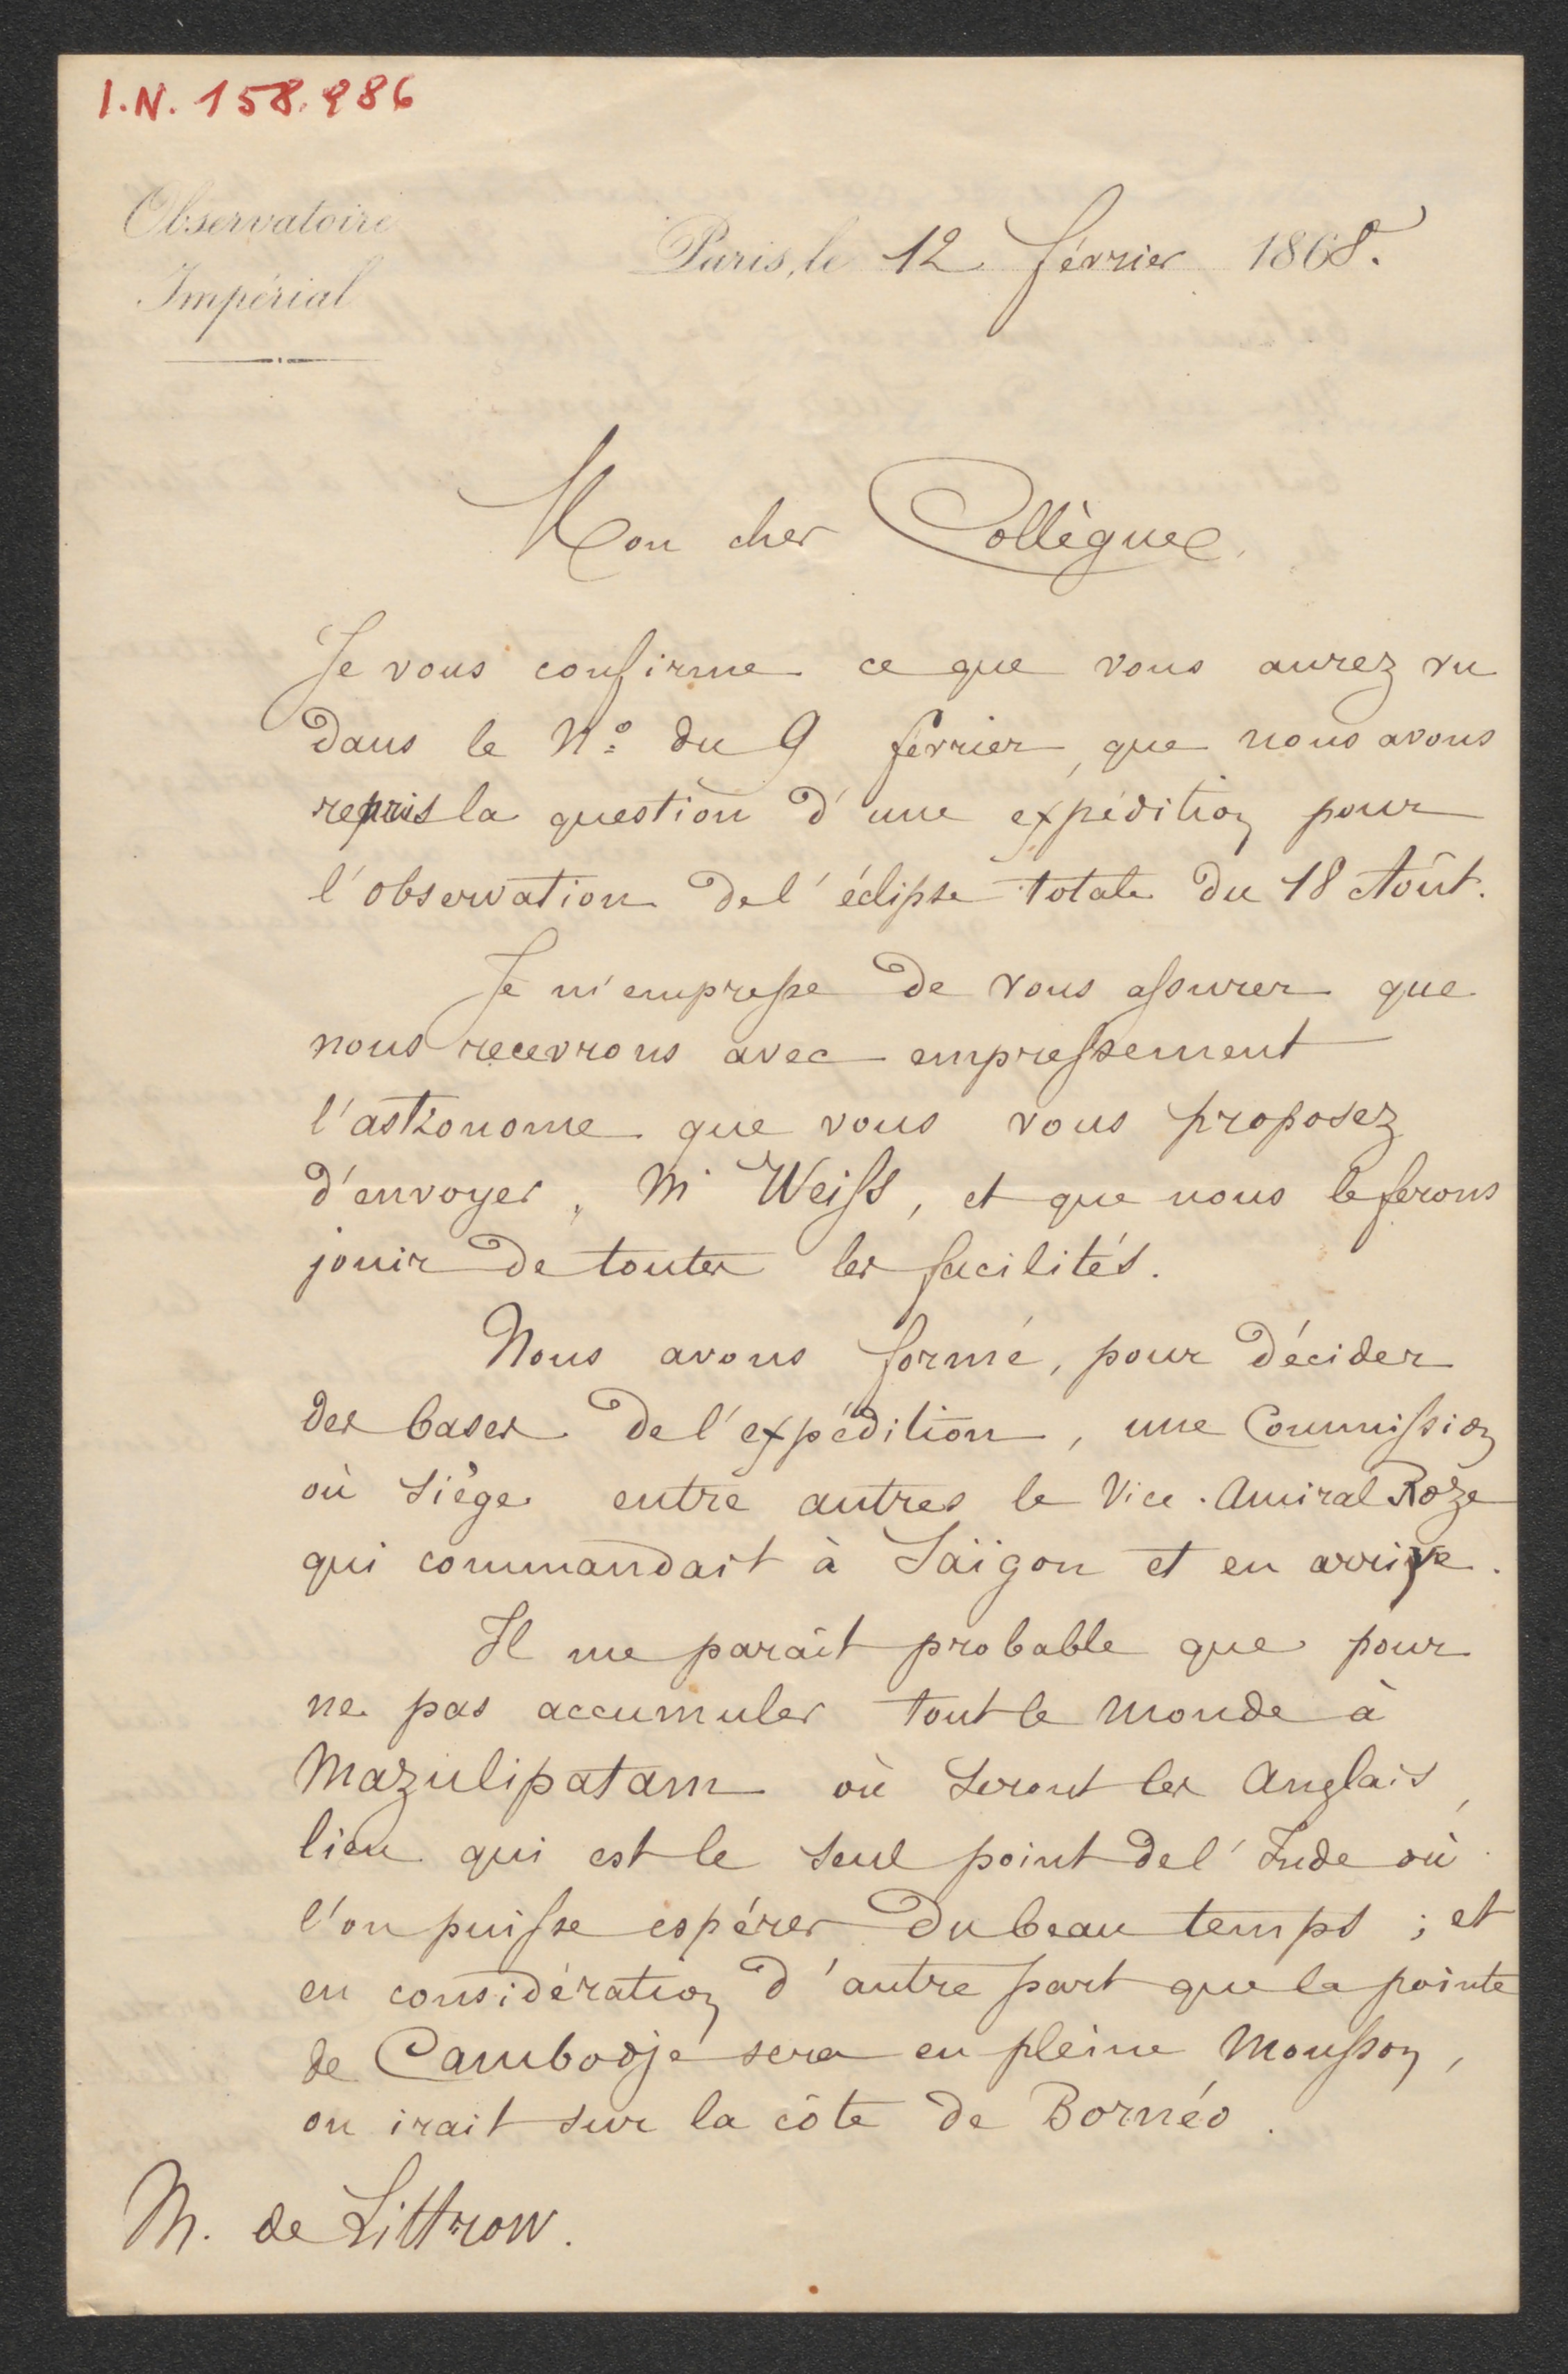 I.N. 158.986
Observatoire
Impérial
Paris, le 12 février 1868.
Mon cher Collègue,
Je vous confirme ce que vous aurez vu
dans le N.º du 9 février, que nous avons
repris la question d'une expédition pour
l'observation de l'éclipse totale du 18 Août.
Je m'empresse de vous assurer que
nous recevrons avec empressement
l'astronome que vous vous proposez
d'envoyer, M Weiss, et que nous le ferons
jouir de toutes les facilités.
Nous avons formé, pour décider
des bases de l'expédition, une Commission
où siège entre autres le Vice-Amiral Roze
qui commandait à Saïgon et en arrive.
Il me paraît probable que pour
ne pas accumuler tout le monde à
Mazulipatam où seront les Anglais,
lieu qui est le seul point de l'Inde où
l'on puisse espérer du beau temps ; et
en considération d'autre part que la pointe
de Cambodje sera en pleine Mousson,
on irait sur la côte de Bornéo.
M. de Littrow.